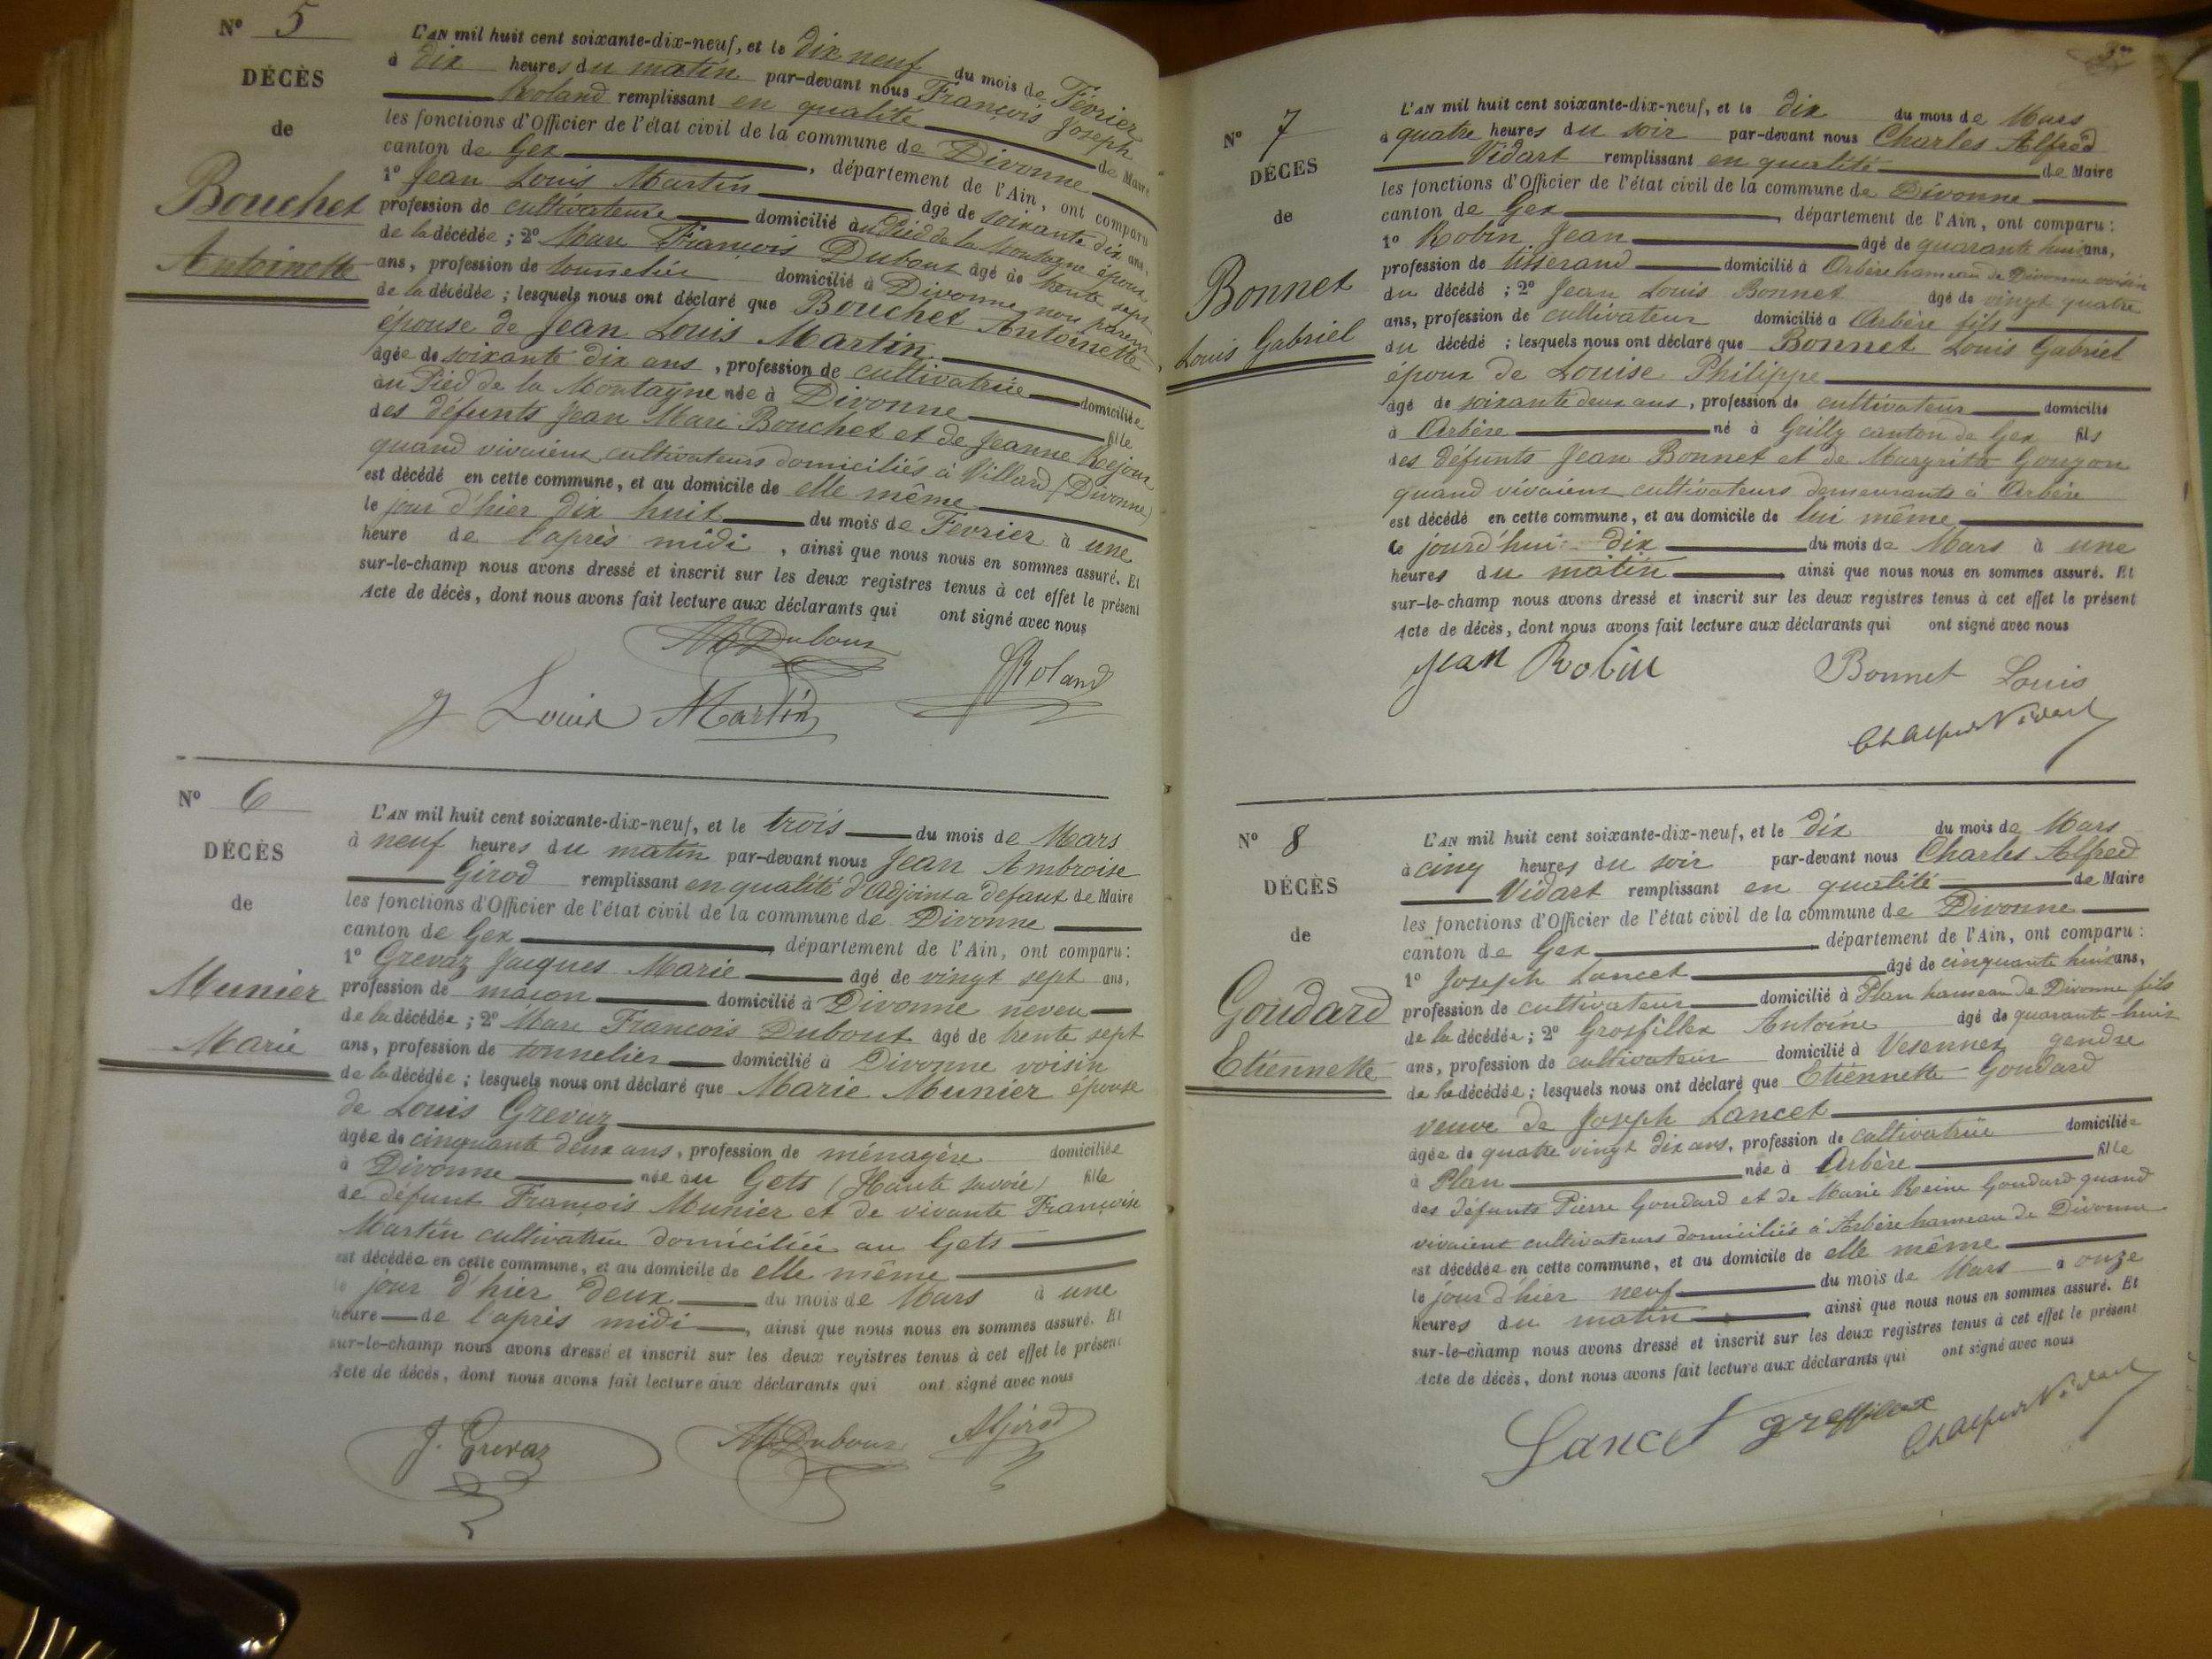 N° 5
DÉCÈS
de
Bouchet
Antoinette
L'AN mil huit cent soixante-dix-neuf, et le dix neuf du mois de Février
à dix heures du matin par-devant nous François Joseph
Roland remplissant en qualité de Maire
les fonctions d'Officier de l'état civil de la commune de Divonne
canton de Gex, département de l'Ain, ont comparu
1° Jean Louis Martin âgé de soixante dix ans,
profession de cultivateur domicilié au Pied de la Montagne époux
de la décédée ; 2° Marc François Dubout âgé de trente sept
ans, profession de tonnelier domicilié à Divonne non parent
de la décédée ; lesquels nous ont déclaré que Bouchet Antoinette
épouse de Jean Louis Martin
âgée de soixante dix ans, profession de cultivatrice domiciliée
au Pied de la Montagne née à Divonne fille
des défunts Jean Marie Bouchet et de Jeanne
quand vivaient cultivateurs domiciliés à Villard (Divonne)
est décédé en cette commune, et au domicile de elle même
le jour d'hier dix huit du mois de Février à une
heure de l'après midi, ainsi que nous nous en sommes assuré. Et
sur-le-champ nous avons dressé et inscrit sur les deux registres tenus à cet effet le présent
Acte de décès, dont nous avons fait lecture aux déclarants qui ont signé avec nous
Dubout
Roland
J Louis Martin
N° 6
DÉCÈS
de
Munier
Marie
L'AN mil huit cent soixante-dix-neuf, et le trois du mois de Mars
à neuf heures du matin par-devant nous Jean Ambroise
Girod remplissant en qualité d'Adjoint a défaut de Maire
les fonctions d'Officier de l'état civil de la commune de Divonne
canton de Gex, département de l'Ain, ont comparu :
1° Grevaz Jacques Marie âgé de vingt sept ans,
profession de maçon domicilié à Divonne neveu
de la décédée ; 2° Marc François Dubout âgé de trente sept
ans, profession de tonnelier domicilié à Divonne voisin
de la décédée ; lesquels nous ont déclaré que Marie Munier épouse
de Louis Grevaz
âgée de cinquante deux ans, profession de ménagère domiciliée
à Divonne née au Gets (Haute Savoie) fille
de défunt François Munier et de vivante Françoise
Martin cultivatrice domiciliée au Gets
est décédée en cette commune, et au domicile de elle même
le jour d'hier deux du mois de Mars à une
heure de l'après midi, ainsi que nous nous en sommes assuré. Et
sur-le-champ nous avons dressé et inscrit sur les deux registres tenus à cet effet le présent
Acte de décès, dont nous avons fait lecture aux déclarants qui ont signé avec nous
J. Grevaz Dubout AGirod
N° 7
DÉCÈS
de
Bonnet
Louis Gabriel
L'AN mil huit cent soixante-dix-neuf, et le dix du mois de Mars
à quatre heures du soir par-devant nous Charles Alfred
Vidart remplissant en qualité de Maire
les fonctions d'Officier de l'état civil de la commune de Divonne
canton de Gex, département de l'Ain, ont comparu :
1° Robin Jean âgé de quarante huit ans,
profession de tisserand domicilié à Arbère hameau de Divonne voisin
du décédé ; 2° Jean Louis Bonnet âgé de vingt quatre
ans, profession de cultivateur domicilié à Arbère fils
du décédé ; lesquels nous ont déclaré que Bonnet Louis Gabriel
époux de Louise Philippe
âgé de soixante deux ans, profession de cultivateur domicilié
à Arbère né à Grilly canton de Gex fils
des défunts Jean Bonnet et de Margrite Goujon
quand vivaient cultivateurs demeurants à Arbère
est décédé en cette commune, et au domicile de lui même
le jourd'hui dix du mois de Mars à une
heures du matin, ainsi que nous nous en sommes assuré. Et
sur-le-champ nous avons dressé et inscrit sur les deux registres tenus à cet effet le présent
Acte de décès, dont nous avons fait lecture aux déclarants qui ont signé avec nous
Jean Robin Bonnet Louis
Ch Alfred Vidart
N° 8
DÉCÈS
de
Goudard
Etiennette
L'AN mil huit cent soixante-dix-neuf, et le dix du mois de Mars
à cinq heures du soir par-devant nous Charles Alfred
Vidart remplissant en qualité de Maire
les fonctions d'Officier de l'état civil de la commune de Divonne
canton de Gex département de l'Ain, ont comparu :
1° Joseph Lancet âgé de cinquante huit ans,
profession de cultivateur domicilié à Plan hameau de Divonne fils
de la décédée ; 2° Grosfillex Antoine âgé de quarante huit
ans, profession de cultivateur domicilié à Vesennex gendre
de la décédée ; lesquels nous ont déclaré que Etiennette Goudard
veuve de Joseph Lancet
âgée de quatre vingt dix ans, profession de cultivatrice domiciliée
à Plan née à Arbère fille
des défunts Pierre Goudard et de Marie Reine Goudard quand
vivaient cultivateurs domiciliés à Arbère hameau de Divonne
est décédée en cette commune, et au domicile de elle même
le jour d'hier neuf du mois de Mars à onze
heures du matin ainsi que nous nous en sommes assuré. Et
sur-le-champ nous avons dressé et inscrit sur les deux registres tenus à cet effet le présent
Acte de décès, dont nous avons fait lecture aux déclarants qui ont signé avec nous
Lancet grosfillex Ch Alfred Vidart